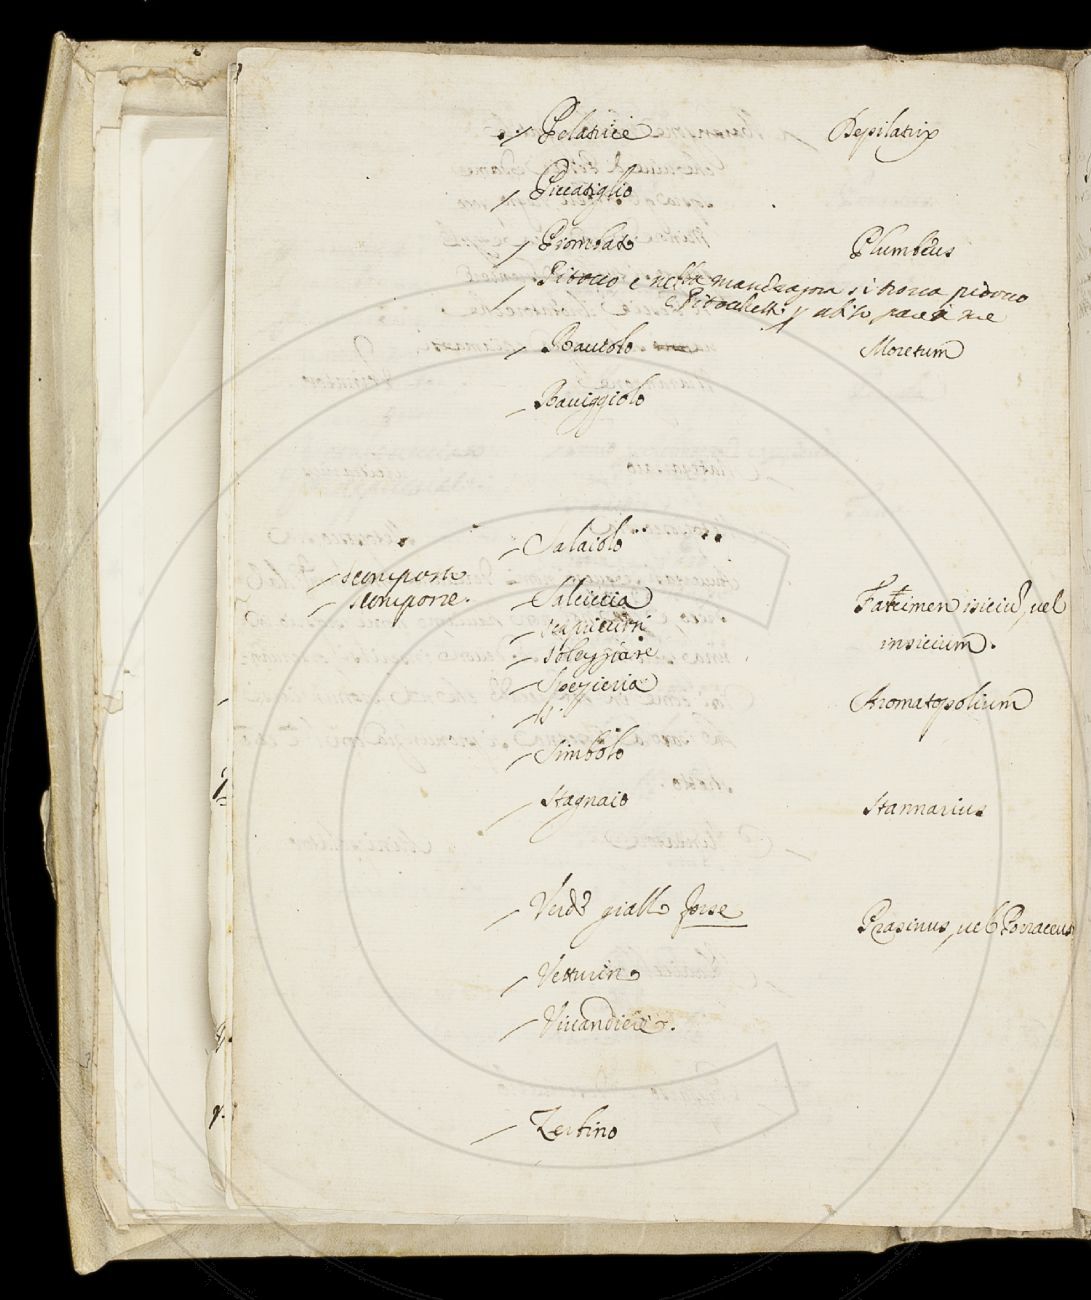 Pelatrice Depilatrix
Piccatiglio
Piombato Plumbeus
Pitocco e nella mandragora si trova pidocco
e Pitochetti
Raucolo Moretum
Raviggiolo
Salaiolo
scomporti
scomporre.
Salciccia Fartimen isiciu, vel
insicium.
scapiciarsi
soleggiare
Spezieria Aromatopolium
Simbolo
Stagnaio Stannarius
Verde giallo forse Prasinus, vel Porraceus
Vetturino
Vivandiere.
Zerbino